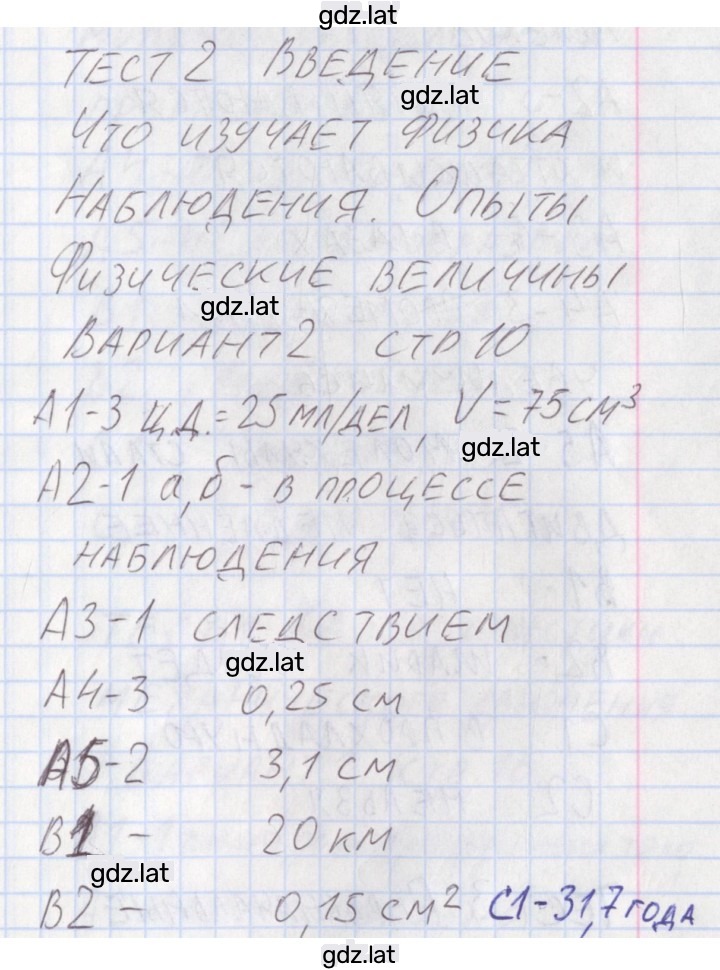 gdz.lat
ТЕСТ 2 ВВЕДЕНИЕ
gdz.lat
ЧТО ИЗУЧАЕТ ФИЗИКА
НАБЛЮДЕНИЯ. ОПЫТЫ
ФИЗИЧЕСКИЕ ВЕЛИЧИНЫ
gdz.lat
ВАРИАНТ 2 СТР 10
А1-3 Ц.Д.=25 МЛ/ДЕЛ, V=75 СМ³
gdz.lat
А2-1 а,б - В ПРОЦЕССЕ
НАБЛЮДЕНИЯ
А3-1 СЛЕДСТВИЕМ
gdz.lat
А4-3 0,25 СМ
А5-2 3,1 СМ
В1 - 20 КМ
gdz.lat
В2 - 0,15 СМ² С1-31,7 ГОДА
gdz.lat